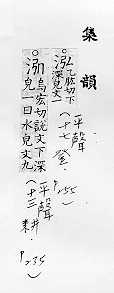 集韻
○泓乙肱切下
深皃文一
平聲
(十七登)
P.255
○泓烏宏切說文下深
皃一曰水皃文九
平聲
(十三耕)
P.235